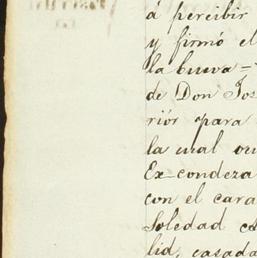 á percibir
y firmó el
la bueva =
de Don Jos
riór para
la cual ou
Ex-condeza
con el cara
Soledad ca
lid, casada